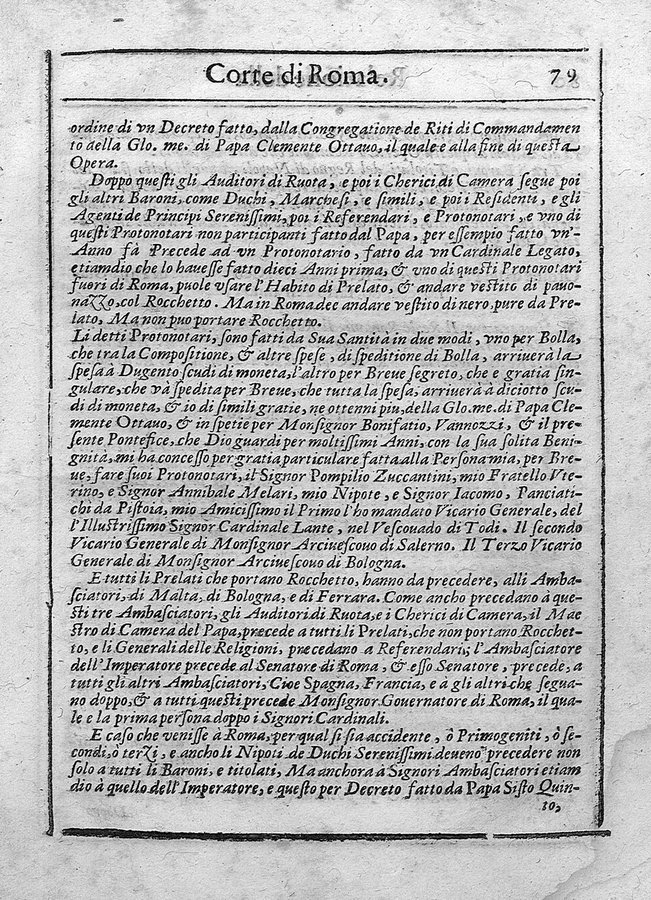 Corte di Roma. 79
ordine di vn Decreto fatto, dalla Congregatione de Riti di Commandamen
to della Glo. me. di Papa Clemente Ottauo, il quale e alla fine di questa
Opera.
Doppo questi gli Auditori di Ruota, e poi i Cherici di Camera segue poi
gli altri Baroni, come Duchi, Marchesi, e simili, e poi i Residenti, e gli
Agenti de Principi Serenissimi, poi i Referendari, e Protonotari, e vno di
questi Protonotari non participanti fatto dal Papa, per essempio fatto vn'-
Anno fà Precede ad vn Protonotario, fatto da vn Cardinale Legato,
etiamdio che lo hauesse fatto dieci Anni prima, & vno di questi Protonotari
fuori di Roma, puole vsare l'Habito di Prelato, & andare vestito di pauo-
nazzo, col Rocchetto. Ma in Roma dee andare vestito di nero, pure da Pre-
lato, Ma non puo portare Rocchetto.
Li detti Protonotari, sono fatti da Sua Santità in due modi, vno per Bolla,
che tra la Compositione, & altre spese, di speditione di Bolla, arriuerà la
spesa à Dugento scudi di moneta, l'altro per Breue segreto, che e gratia sin-
gulare, che và spedita per Breue, che tutta la spesa, arriuerà à diciotto scu-
di di moneta, & io di simili gratie, ne ottenni piu, della Glo. me. di Papa Cle-
mente Ottauo, & in spetie per Monsignor Bonifatio, Vannozzi, & il pre-
sente Pontefice, che Dio guardi per moltissimi Anni, con la sua solita Beni-
gnità, mi ha concesso per gratia particulare fatta alla Persona mia, per Bre-
ue, fare suoi Protonotari, il Signor Pompilio Zuccantini, mio Fratello Vte-
rino, e Signor Annibale Melari, mio Nipote, e Signor Iacomo, Panciati-
chi da Pistoia, mio Amicissimo il Primo l'ho mandato Vicario Generale, del
l'Illustrissimo Signor Cardinale Lante, nel Vescouado di Todi. Il secondo
Vicario Generale di Monsignor Arciuescouo di Salerno. Il Terzo Vicario
Generale di Monsignor Arciuescouo di Bologna.
E tutti li Prelati che portano Rocchetto, hanno da precedere, alli Amba-
sciatori, di Malta, di Bologna, e di Ferrara. Come ancho precedano à que-
sti tre Ambasciatori, gli Auditori di Ruota, e i Cherici di Camera, il Mae
stro di Camera del Papa, præcede a tutti li Prelati, che non portano Rocchet-
to, e li Generali delle Religioni, præcedano a Referendari; l'Ambasciatore
dell'Imperatore precede al Senatore di Roma, & esso Senatore, precede, a
tutti gli altri Ambasciatori, Cioe Spagna, Francia, e à gli altri che segua-
no doppo, & a tutti questi precede Monsignor Gouernatore di Roma, il qua-
le e la prima persona doppo i Signori Cardinali.
E caso che venisse à Roma, per qual si sia accidente, ò Primogeniti, ò se-
condi, ò terzi, e ancho li Nipoti de Duchi Serenissimi deueno precedere non
solo a tutti li Baroni, e titolati, Ma anchora à Signori Ambasciatori etiam
dio à quello dell'Imperatore, e questo per Decreto fatto da Papa Sisto Quin-
to,